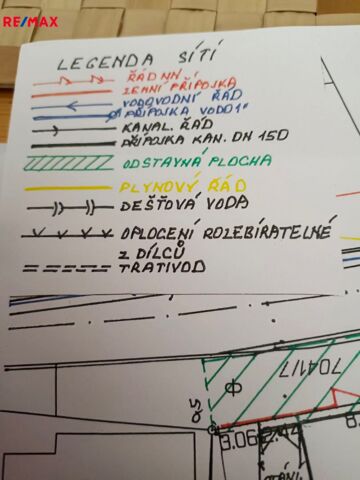 RE/MAX
LEGENDA SÍTÍ
ŘÁD NN
ZEMNÍ PŘÍPOJKA
VODOVODNÍ ŘÁD
PŘÍPOJKA VODO 1"
KANAL. ŘÁD
PŘÍPOJKA KAN. DN 150
ODSTAVNÁ PLOCHA
PLYNOVÝ ŘÁD
DEŠŤOVÁ VODA
OPLOCENÍ ROZEBÍRATELNÉ
Z DÍLCŮ
TRATIVOD
7041/7
9.06